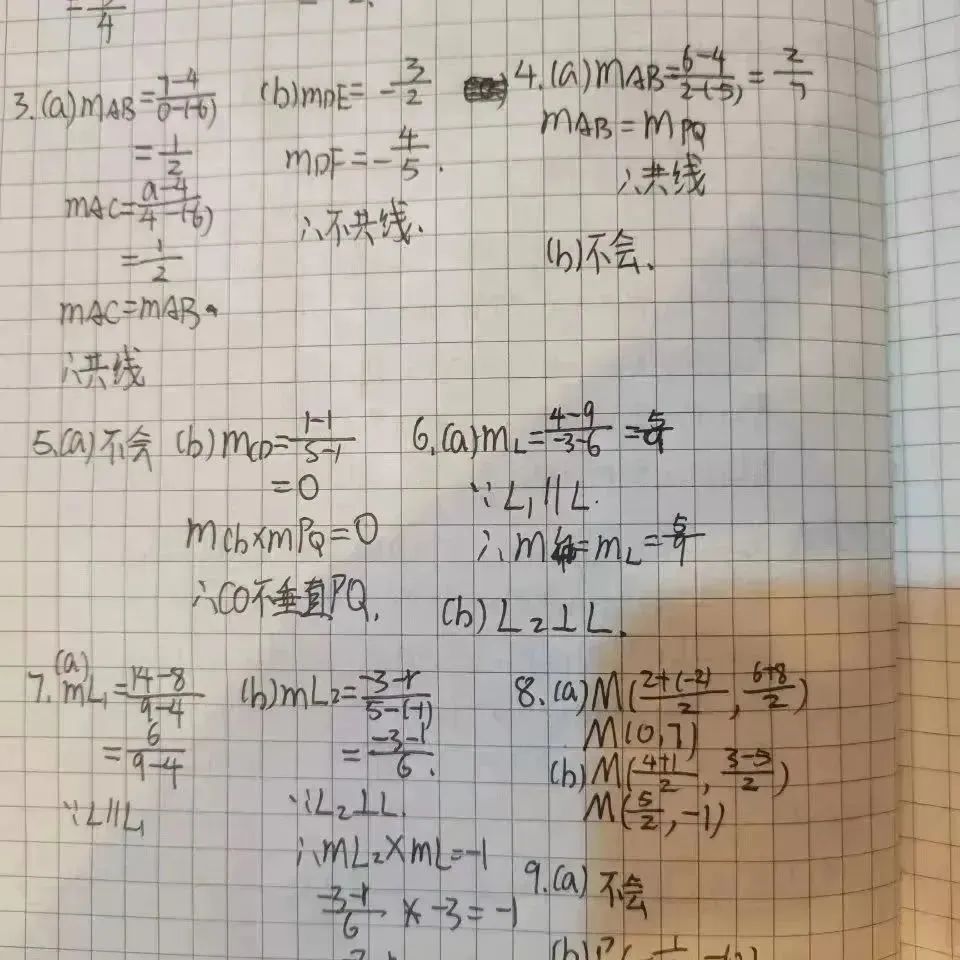 4
3.(a) mAB = 7-4/0-(-6)
= 1/2
mAC = a-4/4-(-6)
= 1/2
mAC = mAB.
∴共线
(b) mDE = -3/2
mDF = -4/5.
∴不共线.
4.(a) mAB = 6-4/2-(-5) = 2/7
mAB = mPQ
∴共线
(b)不会.
5.(a)不会
(b) mCD = 1-1/5-1
= 0
mCD × mPQ = 0
∴CD不垂直PQ.
6.(a) mL = 4-9/-3-6 = 5/9
∵L₁∥L.
= mL = 5/9
(b) L₂⊥L.
7.(a) mL₁ = 14-8/9-4
= 6/9-4
∵L∥L₁
(b) mL₂ = -3-r/5-(-1)
= -3-r/6.
∵L₂⊥L.
∴mL₂×mL=-1
-3-r/6 × -3 = -1
8.(a) M(2+(-2)/2, 6+8/2)
M(0,7)
(b) M(4+1/2, 3-5/2)
M(5/2, -1)
9.(a) 不会
(b)